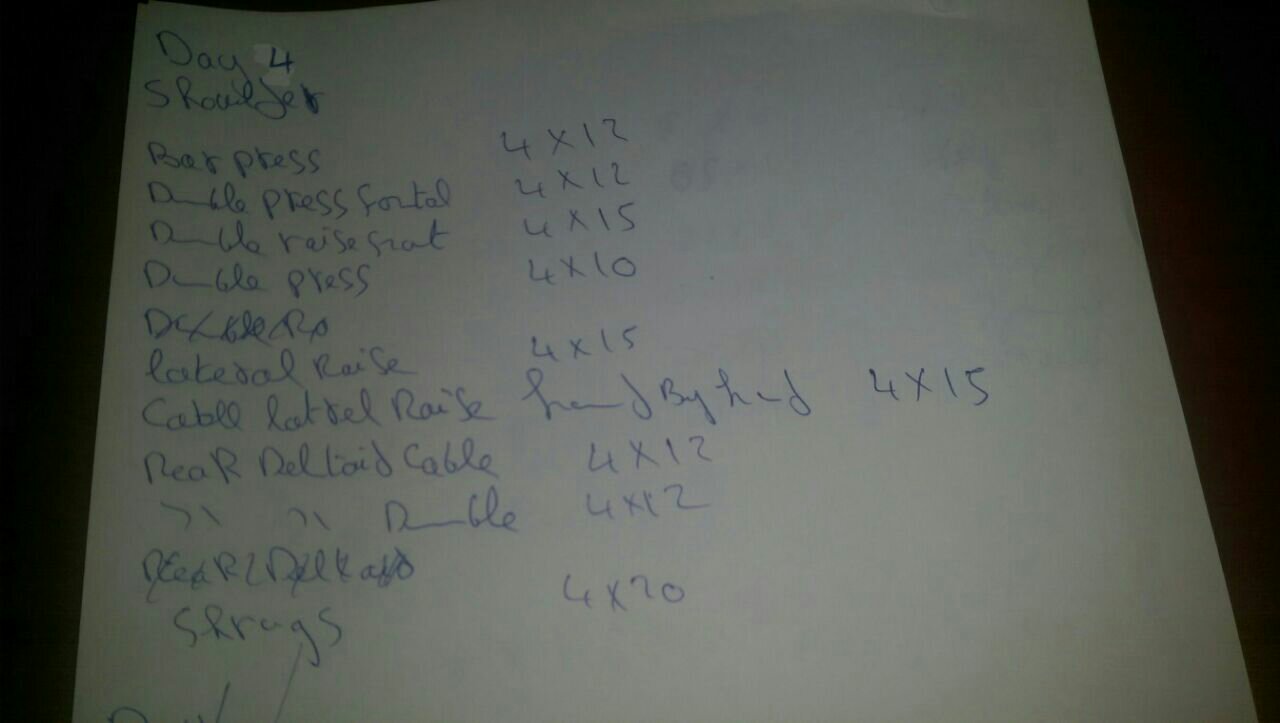 Day 4
Shoulder
Bar press 4 X 12
Dumble press frontal 4 X 12
Dumble raise front 4 X 15
Dumble press 4 X 10
lateral Raise 4 X 15
Cable latrel Raise hand By hand 4 X 15
ReaR Deltoid Cable 4 X 12
" " Dumble 4 X 12
Shrugs 4 X 20